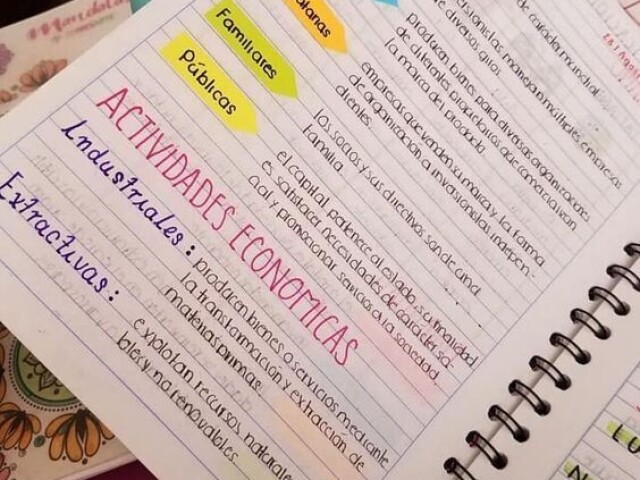 Mandalas
de caracter mundial.
manejan múltiples empresas
de diversos giros.
producen bienes para diversas organizaciones
de diferentes productos que comercializan
la marca del producto
empresas que venden su marca y la forma
de organización a inversionistas indepen-
dientes.
Familiares
los socios y sus directivos son de una
Familia
Públicas
el capital pertenece al estado, su finalidad
es satisfacer necesidades de caracter so-
cial y promocionar servicios a la sociedad.
ACTIVIDADES ECONOMICAS
Industriales:
producen bienes o servicios mediante
la transformación y extracción de
materias primas.
Extractivas:
explotan recursos naturales
bles y no renovables.